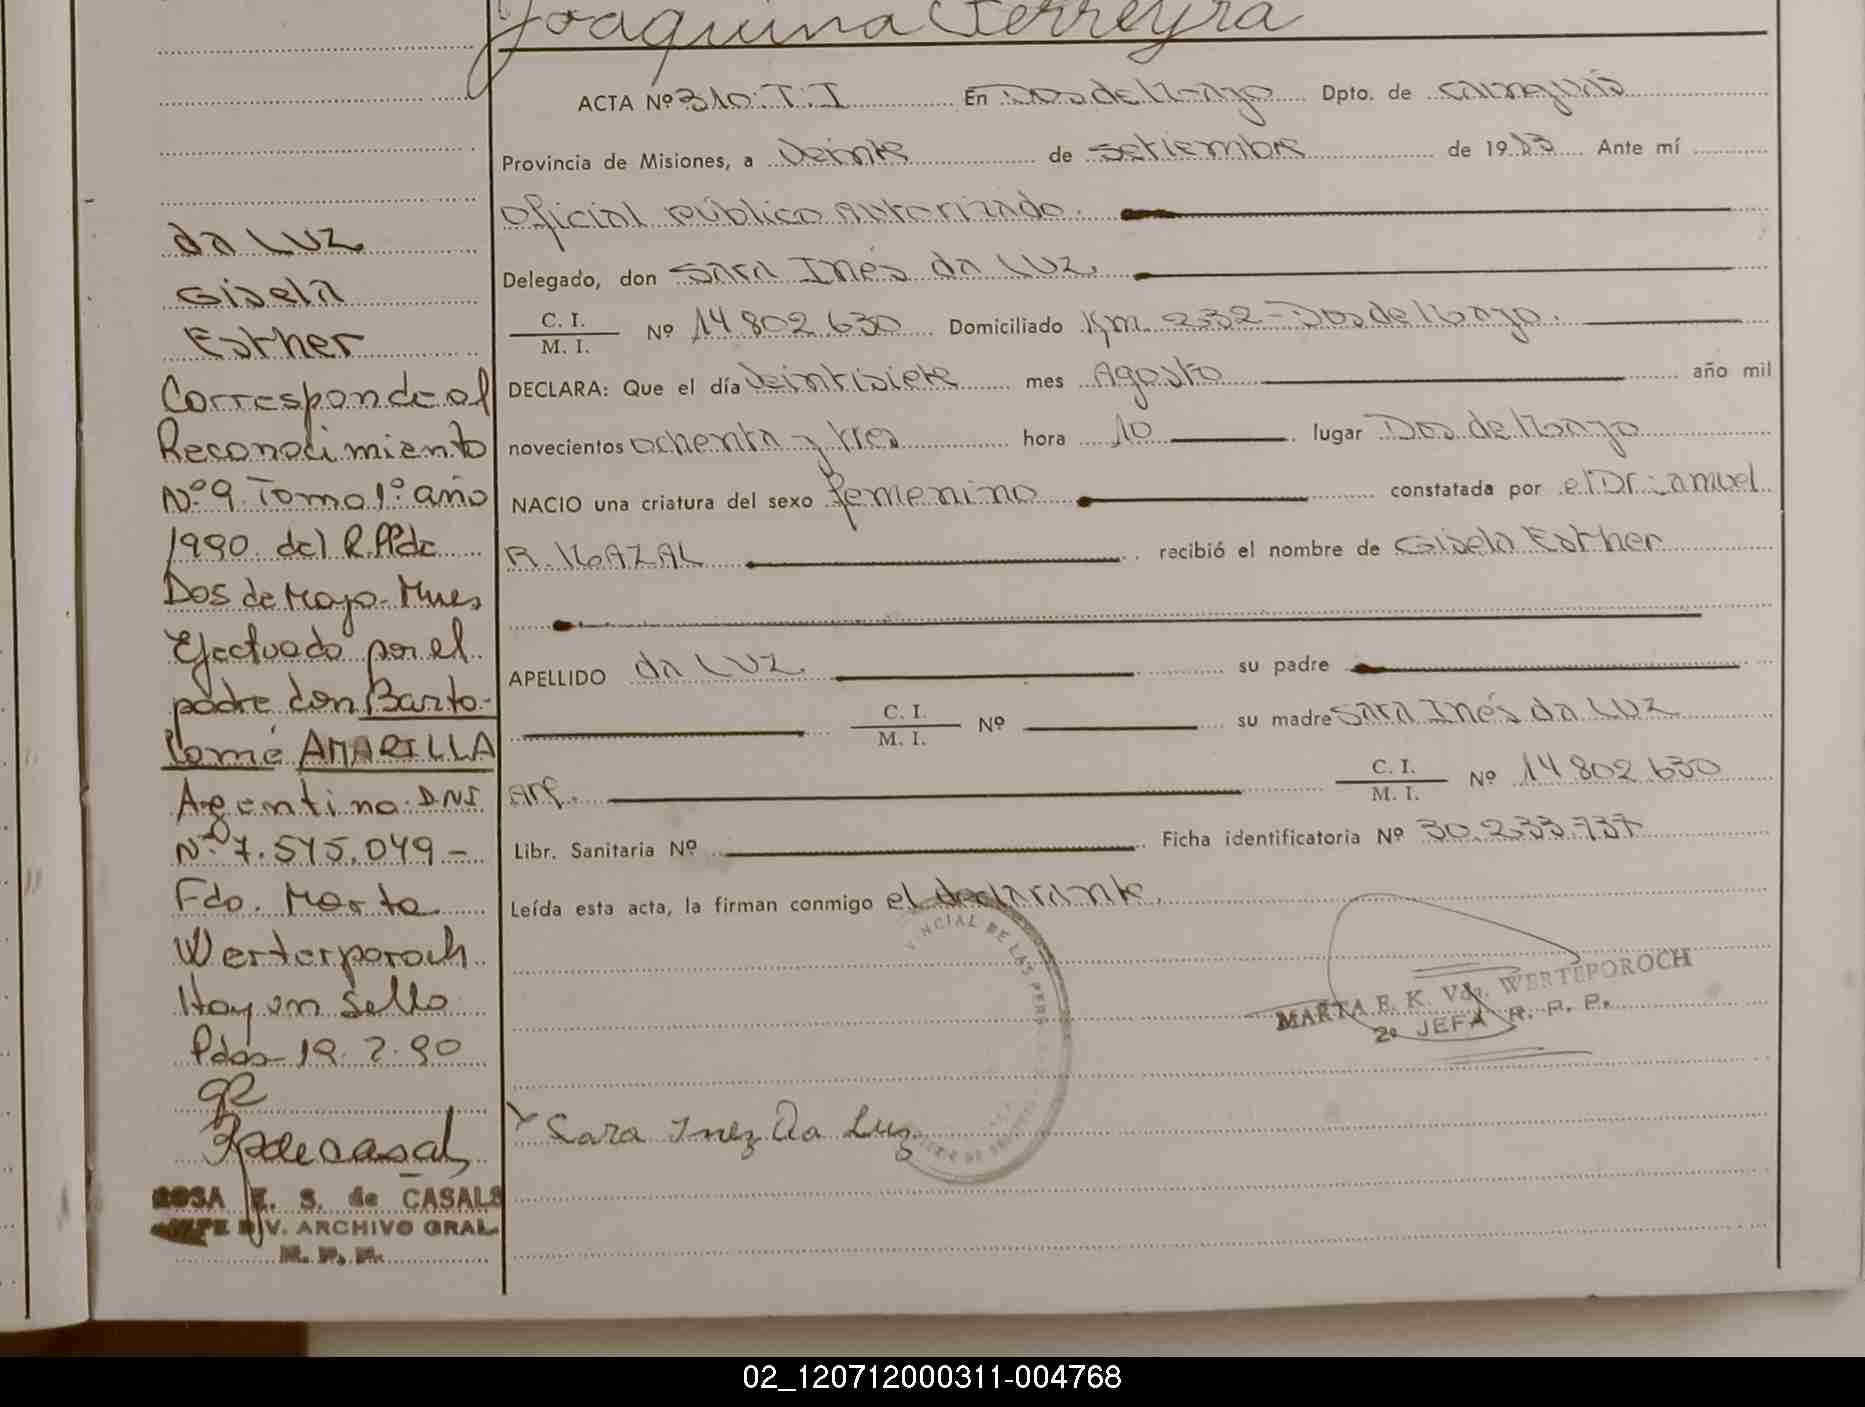 Joaquina Ferreyra
da LUZ
Gisela
Esther
Corresponde al
Reconocimiento
Nº 9. Tomo 1º año
1990 del R.PP de
Dos de Mayo - Mnes
Efectuado por el
padre don Barto-
lomé AMARILLA
Argentino. DNI
Nº 7.545.049 -
Fdo. Marta
Werterporoch
Hay un Sello
Pdas - 19.2.90
ROSA E. S. de CASALS
JEFE DIV. ARCHIVO GRAL.
ACTA Nº 310. T. I En Dos de Mayo Dpto. de Cainguás
Provincia de Misiones, a Veinte de setiembre de 1983 Ante mí
Oficial público Autorizado.
Delegado, don SARA INÉS da LUZ.
C. I.
M. I. Nº 14.802.630 Domiciliado Km. 232 - Dos de Mayo.
DECLARA: Que el día Veintisiete mes Agosto año mil
novecientos ochenta y tres hora 10 lugar Dos de Mayo
NACIO una criatura del sexo femenino constatada por el Dr. Samuel
R. recibió el nombre de Gisela Esther
APELLIDO da LUZ. su padre
C. I.
M. I. Nº su madre SARA INÉS da LUZ
Arg. C. I.
M. I. Nº 14.802.630
Libr. Sanitaria Nº Ficha identificatoria Nº 30.233.737
Leída esta acta, la firman conmigo el declarante.
NCIAL DE LAS PERS
MARTA E. K. Vda. WERTEPOROCH
2º JEFA R. P. P.
Sara Inez Da Luz
02_120712000311-004768